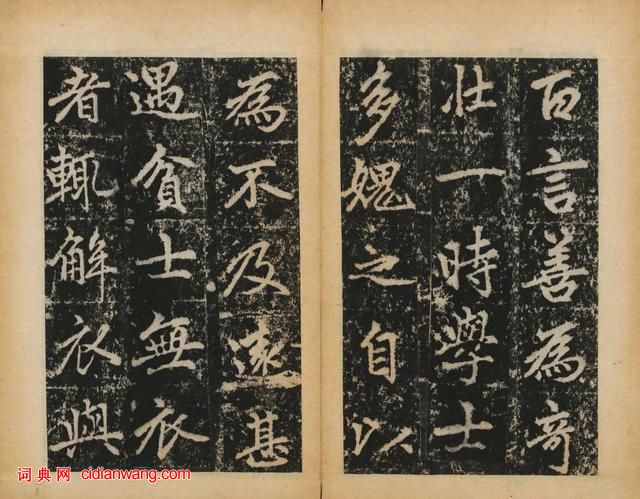 百言善為奇
壯一時學士
多媿之自以
為不及遠甚
遇貧士無衣
者輒解衣與
词典网 cidianwang.com